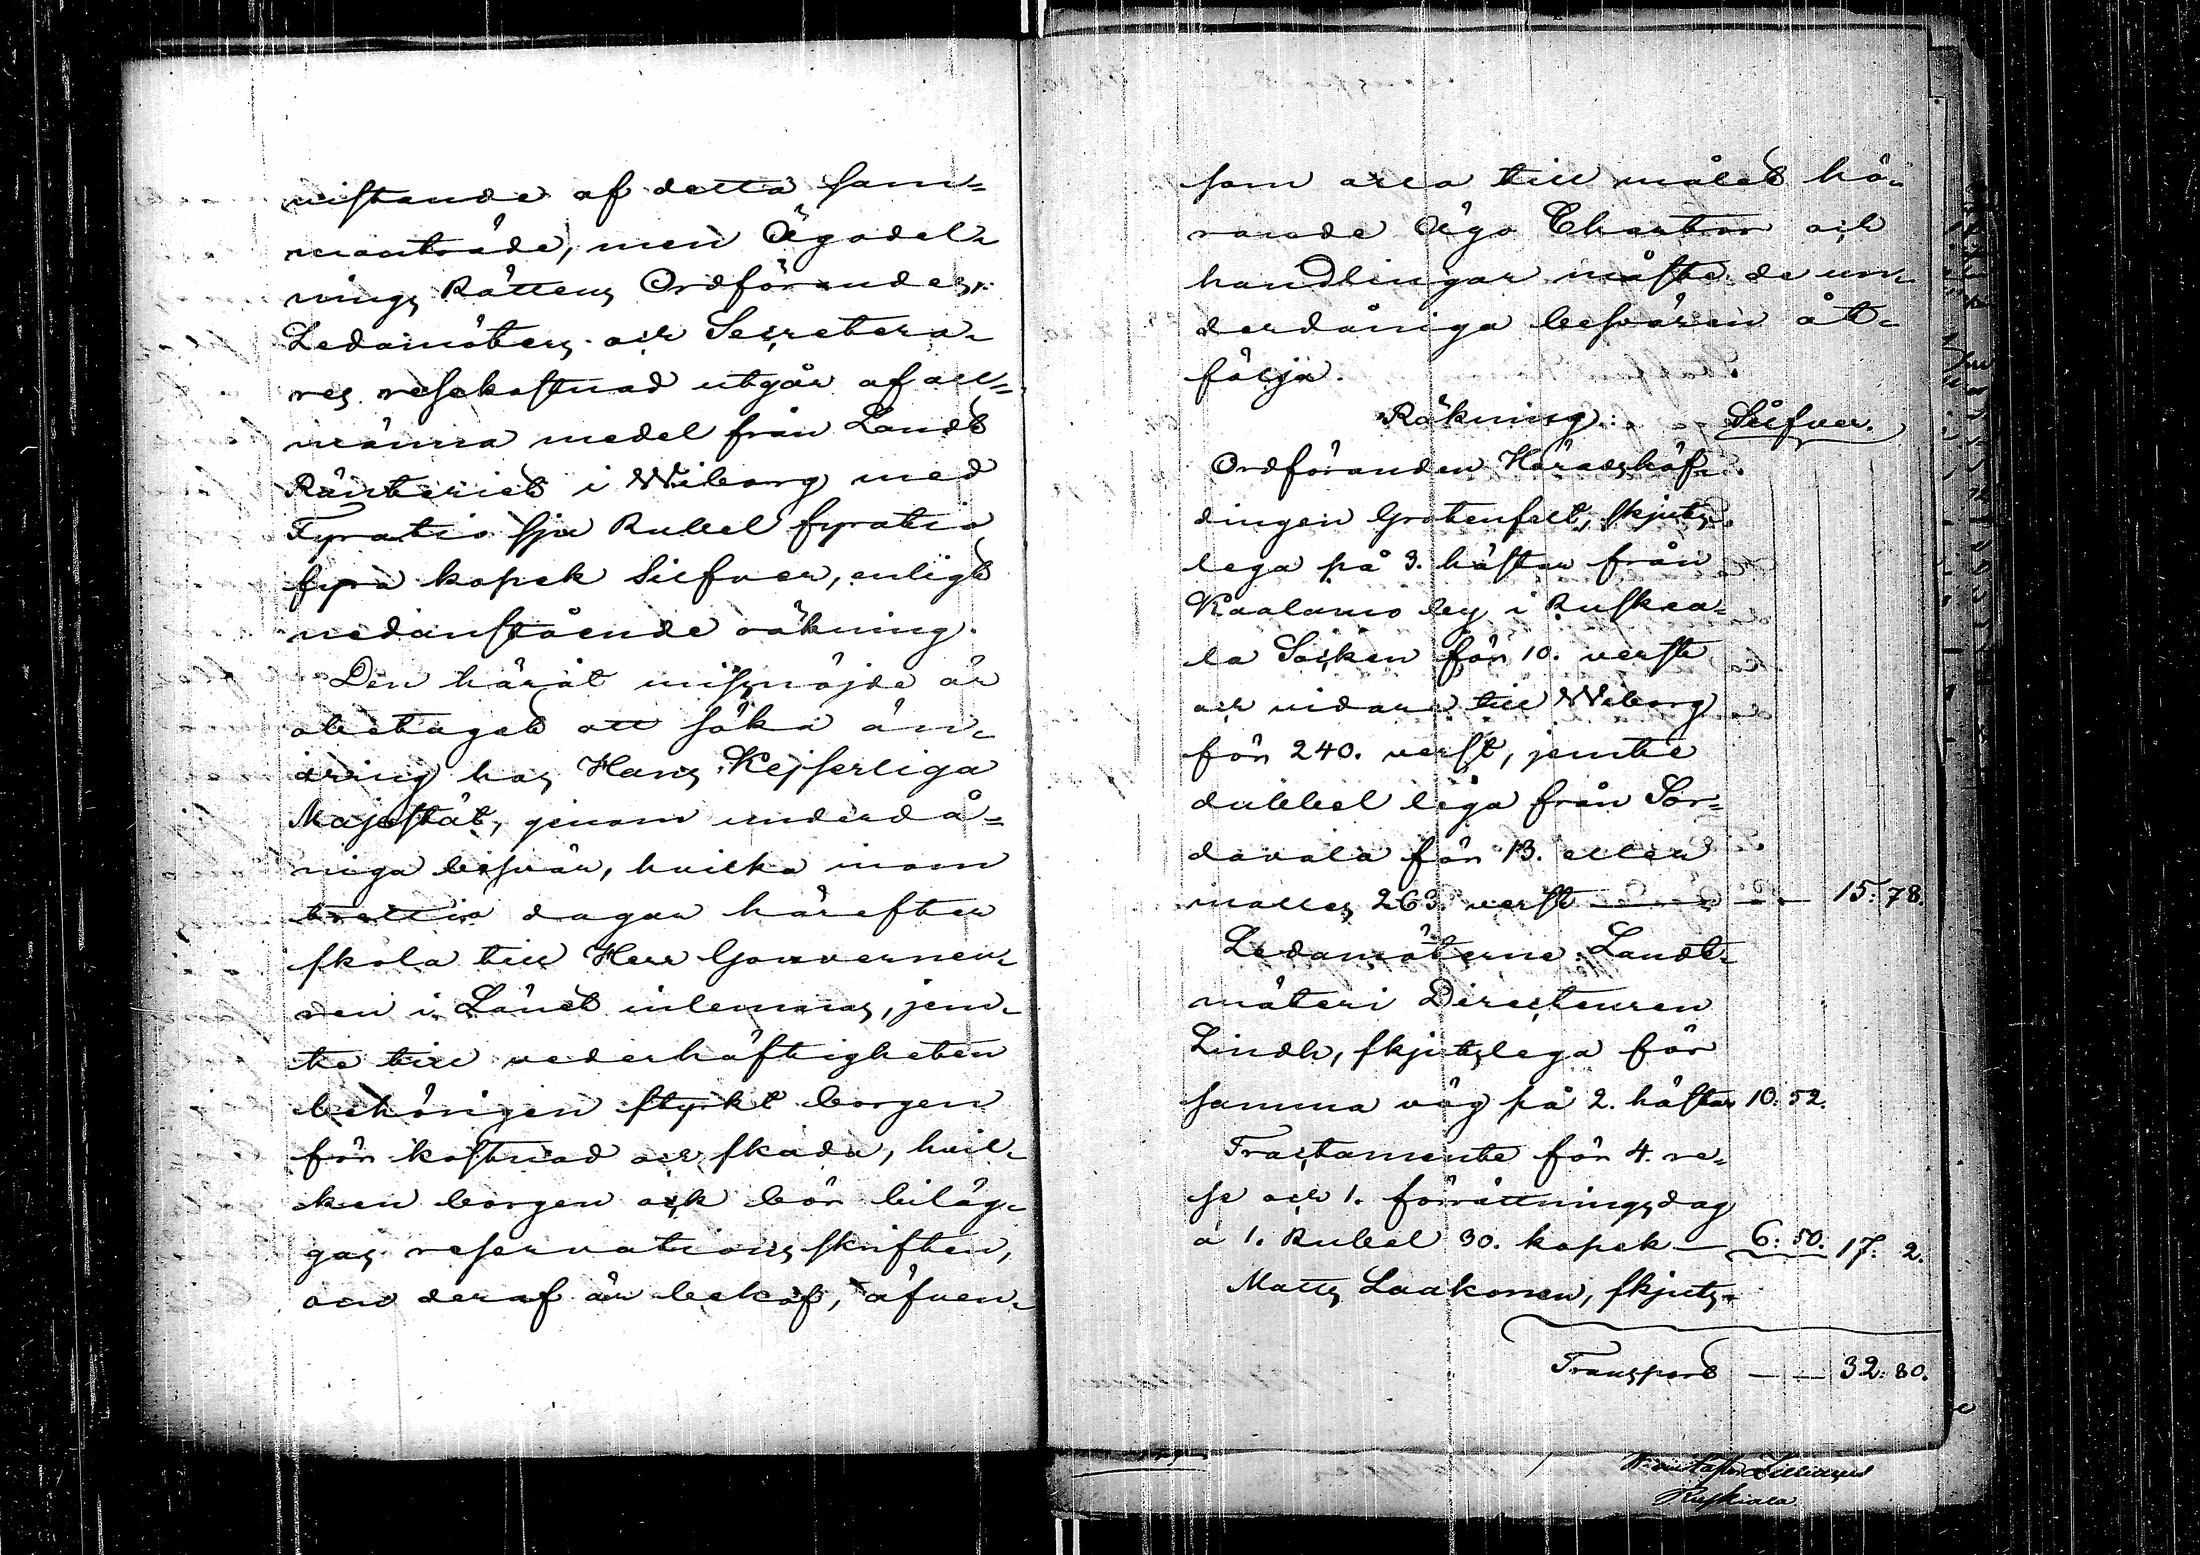 nistande af detta sam=
manträde, men Ägodel-
nings Rättens Ordförandes,
Ledamöters och Secretera-
res resekostnad utgår af all-
männa medel från Landt
Ränteriet i Wiborg med
Fyratio sju Rubel fyratio
fyra kopek Silfver, enligt
nedanstående räkning.
Den häråt missnöjde är
obetaget att söka än-
dring hos Hans Kejserliga
Majestät, genom underdå=
niga besvär, hvilka inom
trettio dagar härefter
skola till Herr Gouverneu-
ren i Länet inlemnas, jem-
te till vederhäftigheten
behörigen styrkt borgen
för kostnad och skada, hvil-
ken borgen ock bör biläg-
gas reservations skriften,
om deraf är behof, äfven-
som alla till målet hö-
rande Ägo Chartor och
handlingar måste de un-
derdåniga besvären åt-
följa.
Räkning: Silfver.
Ordföranden Häradshöf-
dingen Grotenfelt, skjuts-
lega på 3. hästar från
Kaalamo by i Ruskea-
la Socken för 10. verst
och vidare till Wiborg
för 240. verst, jemte
dubbel lega från Sor-
davala för 13. eller
inalles 263. verst — — — 15: 78.
Ledamöterne: Landt-
mäteri Directeuren
Lindh, skjutslega för
samma väg på 2. hästar 10: 52.
Tractamente för 4. re-
se och 1. förrättningsdag
à 1. Rubel 30. kopek — 6: 50. 17: 2.
Matts Laakonen, skjuts-
Transport — — 32: 80.
Ruskiala